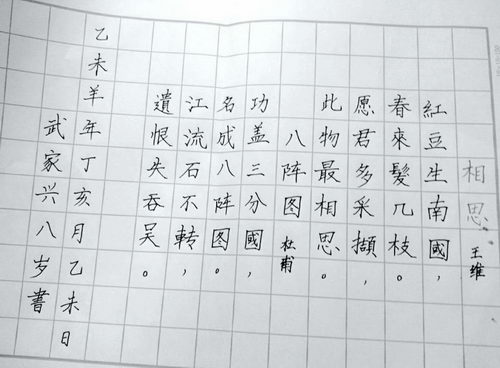 相思 王维
紅豆生南國，
春來髮几枝。
愿君多采擷，
此物最相思。
八阵图 杜甫
功盖三分國，
名成八阵图。
江流石不轉，
遺恨失吞吴。
乙未羊年丁亥月乙未日
武家兴八岁書